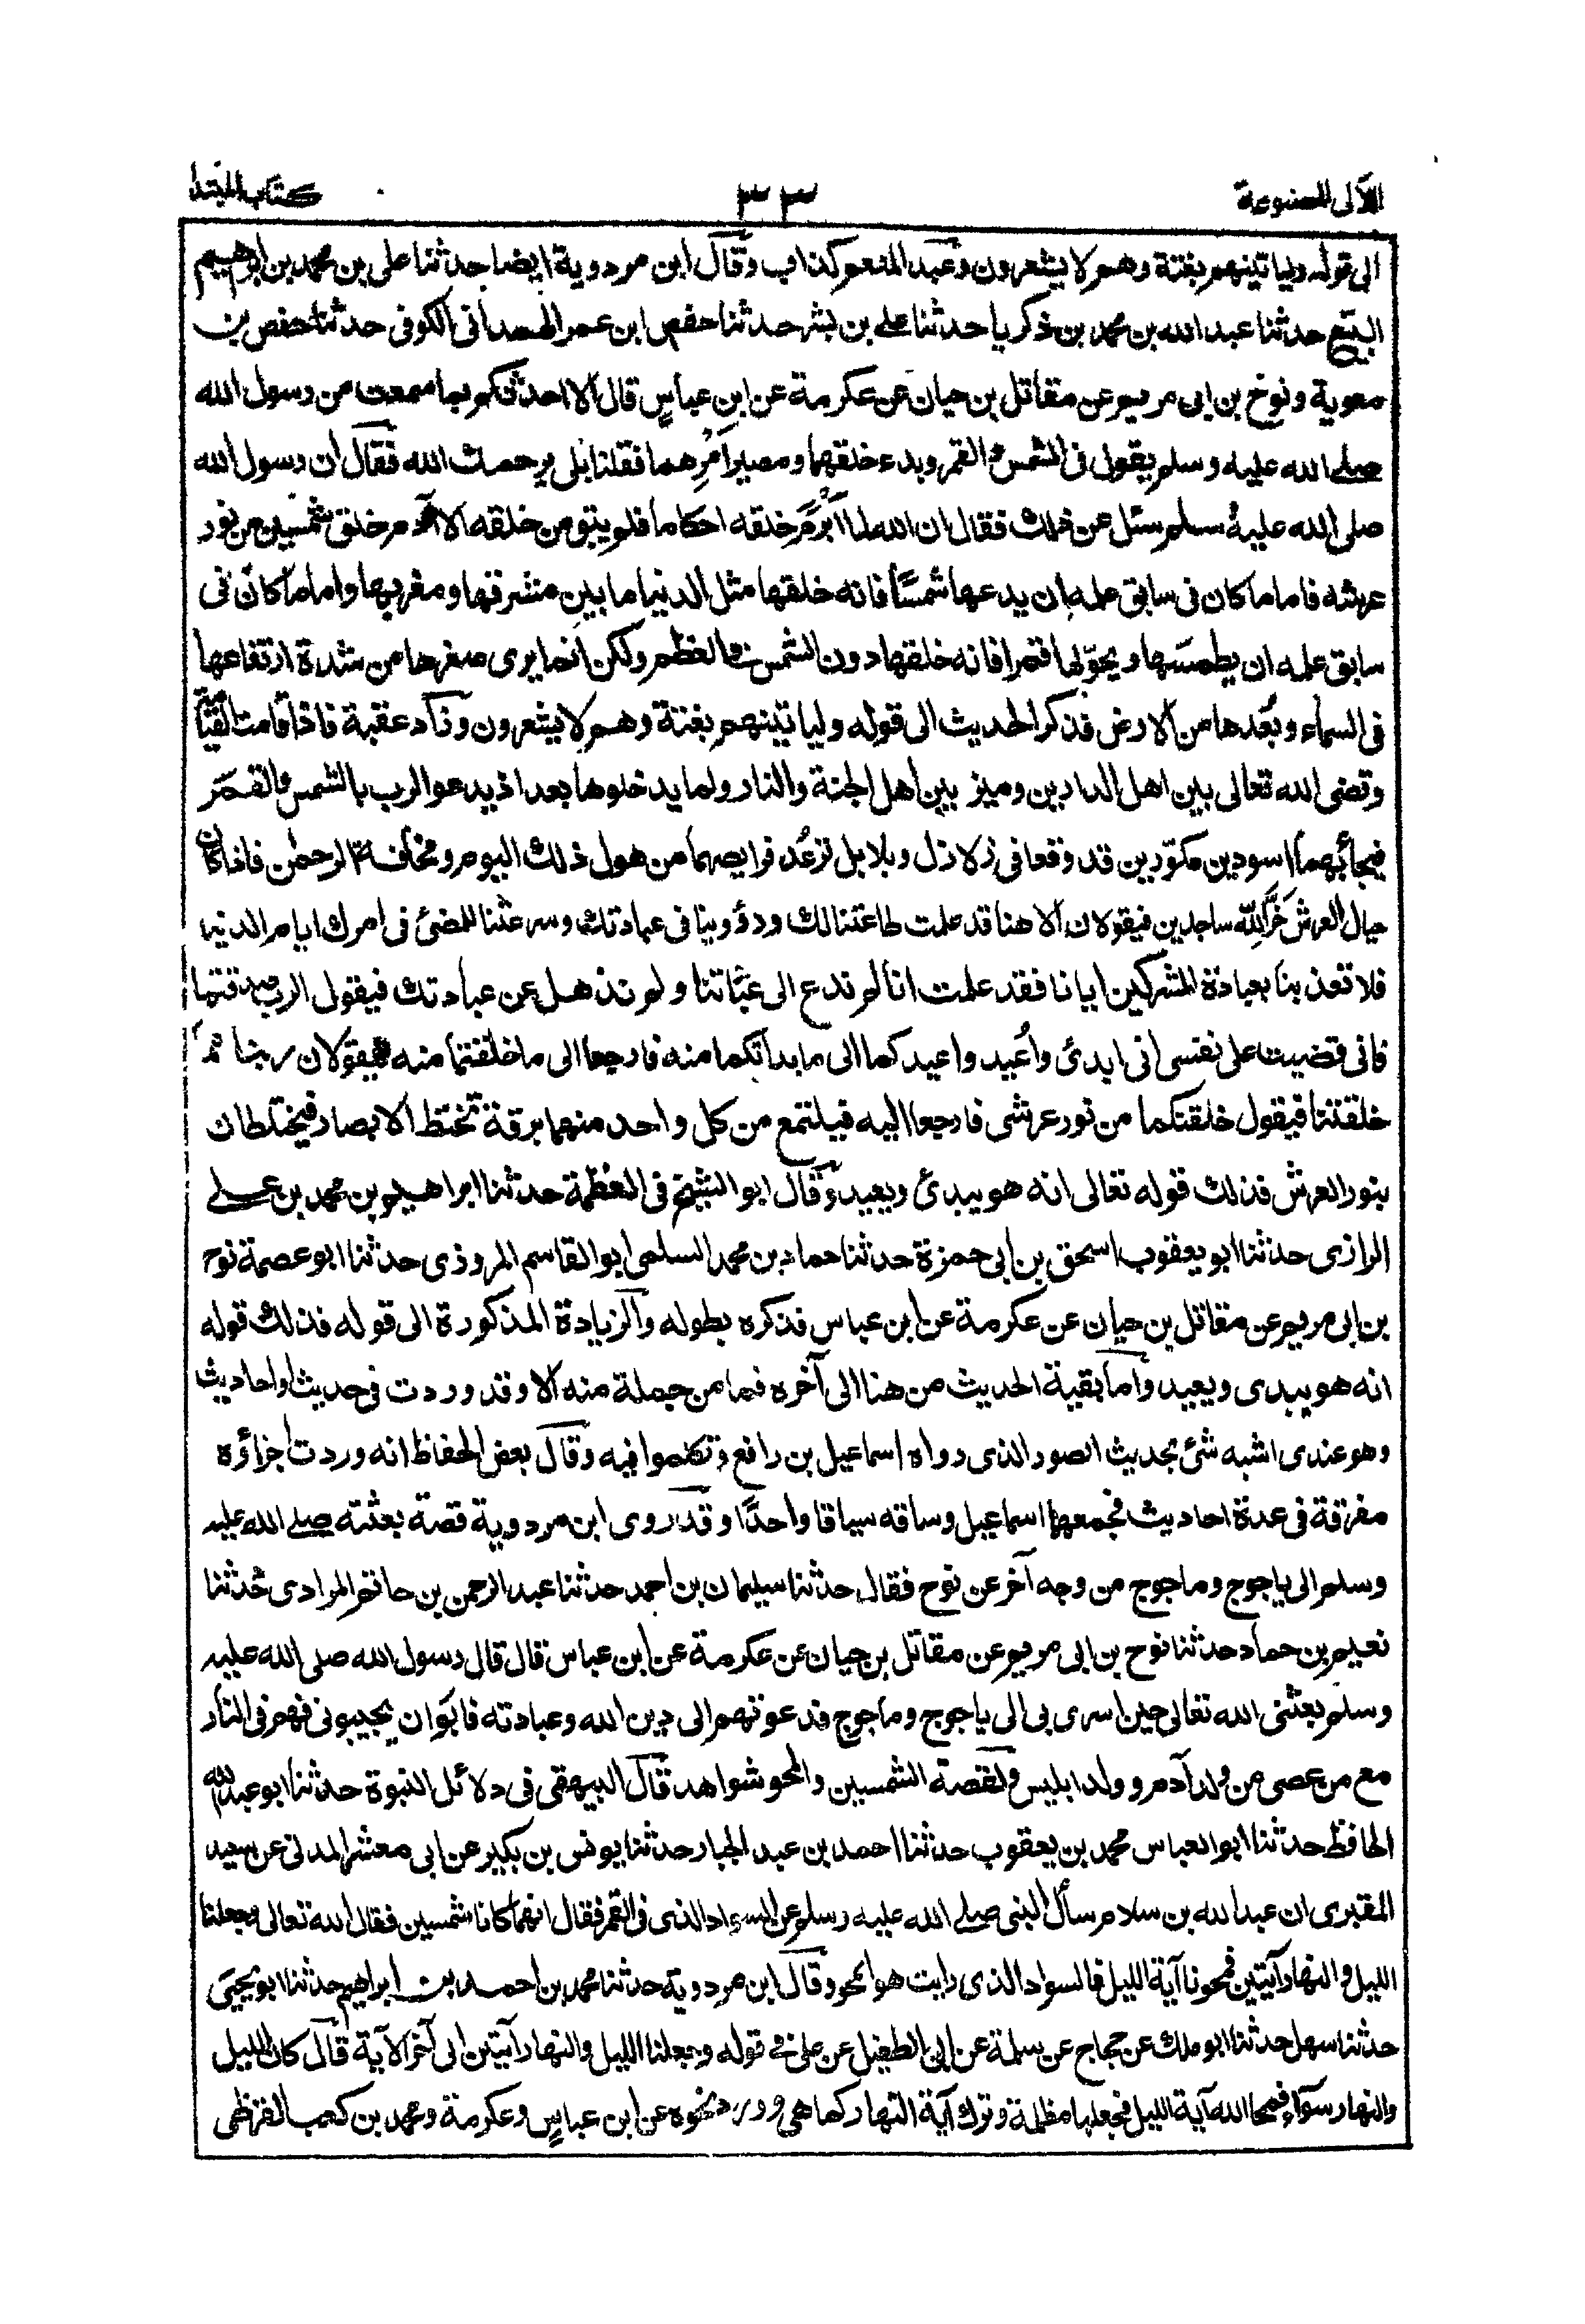 اللآلى المصنوعة
٣٣
كتاب المبتدا
الى قوله وليا تينهم بغتة وهم لا يشعرون وعبد المنعم كذاب وقال ابن مردوية ايضا حدثنا على بن محمد بن ابراهيم
البيع حدثنا عبد الله بن محمد بن زكريا حدثنا على بن بشر حدثنا حفص ابن عمر الهمدانى الكوفى حدثنا حفص بن
معوية ونوح بن ابى مريم عن مقاتل بن حيان عن عكرمة عن ابن عباس قال الا احدثكم بما سمعت من رسول الله
صلى الله عليه وسلم يقول فى الشمس والقمر وبدء خلقهما ومصير امرهما فقلنا بلى يرحمك الله فقال ان رسول الله
صلى الله عليه وسلم سئل عن ذلك فقال ان الله لما ابرم خلقه احكاما فلم يبق من خلقه الا آدم خلق شمسين من نور
عرشه فاما ما كان فى سابق علمه ان يدعها شمسًا فانه خلقها مثل الدنيا ما بين مشرقها ومغربها واما ما كان فى
سابق علمه ان يطمسها ويحوّلها قمرا فانه خلقها دون الشمس فى العظم ولكن انما يرى صغرها من شدة ارتفاعها
فى السماء وبُعدها من الارض فذكر الحديث الى قوله وليا تينهم بغتة وهم لا يشعرون وزاد عقبة فاذا قامت القيٰمة
وقضى الله تعالى بين اهل الدارين وميز بين اهل الجنة والنار ولما يدخلوها بعد اذ يدعو الرب بالشمس والقمر
فيجائبهما اسودين مكوّرين قد وقعا فى زلازل وبلابل ترعُد فرايصهما من هول ذلك اليوم ومخافة الرحمٰن فاذا كان
حيال العرش خَرَّا لله ساجدين فيقولان الا هنا قد علمت طاعتنا لك ودؤوبنا فى عبادتك وسرعتنا للمضئ فى امرك ايام الدنيا
فلا تعذبنا بعبادة المشركين ايانا فقد علمت انا لم ندع الى عبادتنا ولم نذهل عن عبادتك فيقول الرب صدقتما
فانى قضيت على نفسى انى ابدئ واُعيد واعيد كما الى ما بدأتكما منه فارجعا الى ما خلقتما منه فيقولان ربنا مم
خلقتنا فيقول خلقتكما من نور عرشى فارجعا اليه فيلتمع من كل واحد منهما برقة تختطف الابصار فيختلطان
بنور العرش فذلك قوله تعالى انه هو يبدئ ويعيد وقال ابو الشيخ فى العُظمة حدثنا ابراهيم بن محمد بن على
الرازى حدثنا ابو يعقوب اسحق بن ابى حمزة حدثنا حماد بن محمد السلمى ابو القاسم المروذى حدثنا ابو عصمة نوح
بن ابى مريم عن مقاتل بن حيان عن عكرمة عن ابن عباس فذكره بطوله والزيادة المذكورة الى قوله فذلك قوله
انه هو يبدى ويعيد واما بقية الحديث من هنا الى آخره فما من جملة منه الا وقد وردت فى حديث او احاديث
وهو عندى اشبه شئ بحديث الصور الذى رواه اسماعيل بن رافع وتكلموا فيه وقال بعض الحفاظ انه وردت اجزاؤه
مفرقة فى عدة احاديث فجمعها اسماعيل وساقه سياقا واحدًا وقد روى ابن مردوية قصة بعثته صلى الله عليه
وسلم الى ياجوج وماجوج من وجه آخر عن نوح فقال حدثنا سليمان بن احمد حدثنا عبد الرحمن بن حاتم المرادى حدثنا
نعيم بن حماد حدثنا نوح بن ابى مريم عن مقاتل بن حيان عن عكرمة عن ابن عباس قال قال رسول الله صلى الله عليه
وسلم بعثنى الله تعالى حين اسرى بى الى ياجوج وماجوج فدعوتهم الى دين الله وعبادته فابوا ان يجيبونى فهم فى النار
مع من عصى من ولد آدم وولد ابليس ولقصة الشمسين والمحو شواهد قال البيهقى فى دلائل النبوة حدثنا ابو عبد الله
الحافظ حدثنا ابو العباس محمد بن يعقوب حدثنا احمد بن عبد الجبار حدثنا يونس بن بكير عن ابى معشر المدنى عن سعيد
المقبرى ان عبد الله بن سلام سأل النبى صلى الله عليه وسلم عن السواد الذى فى القمر فقال انهما كانا شمسين فقال الله تعالى وجعلنا
الليل والنهار آيتين فمحونا آية الليل فالسواد الذى رايت هو المحو وقال ابن مردوية حدثنا محمد بن احمد بن ابراهيم حدثنا ابو يحيى
حدثنا سهل حدثنا ابو ملك عن حجاج عن سلمة عن ابى الطفيل عن على فى قوله وجعلنا الليل والنهار آيتين الى آخر الآية قال كان الليل
والنهار سوآء فمحا الله آية الليل فجعلها مظلمة وترك آية النهار كما هى وورد نحوه عن ابن عباس وعكرمة ومحمد بن كعب القرظى